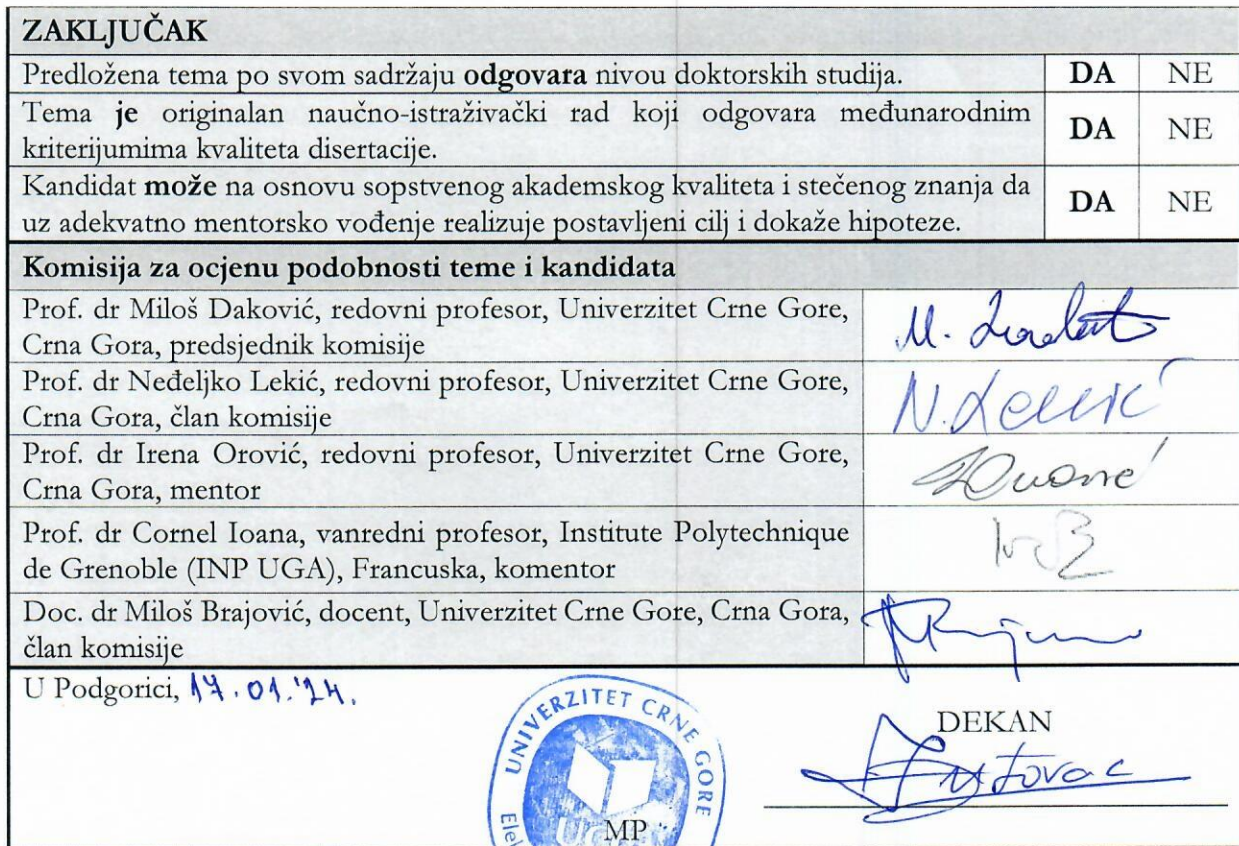 ZAKLJUČAK
Predložena tema po svom sadržaju odgovara nivou doktorskih studija. DA NE
Tema je originalan naučno-istraživački rad koji odgovara međunarodnim
kriterijumima kvaliteta disertacije. DA NE
Kandidat može na osnovu sopstvenog akademskog kvaliteta i stečenog znanja da
uz adekvatno mentorsko vođenje realizuje postavljeni cilj i dokaže hipoteze. DA NE
Komisija za ocjenu podobnosti teme i kandidata
Prof. dr Miloš Daković, redovni profesor, Univerzitet Crne Gore,
Crna Gora, predsjednik komisije
Prof. dr Neđeljko Lekić, redovni profesor, Univerzitet Crne Gore,
Crna Gora, član komisije
N. Lekić
Prof. dr Irena Orović, redovni profesor, Univerzitet Crne Gore,
Crna Gora, mentor
Prof. dr Cornel Ioana, vanredni profesor, Institute Polytechnique
de Grenoble (INP UGA), Francuska, komentor
Doc. dr Miloš Brajović, docent, Univerzitet Crne Gore, Crna Gora,
član komisije
U Podgorici, 17.01.'24.
UNIVERZITET CRNE GORE
DEKAN
MP